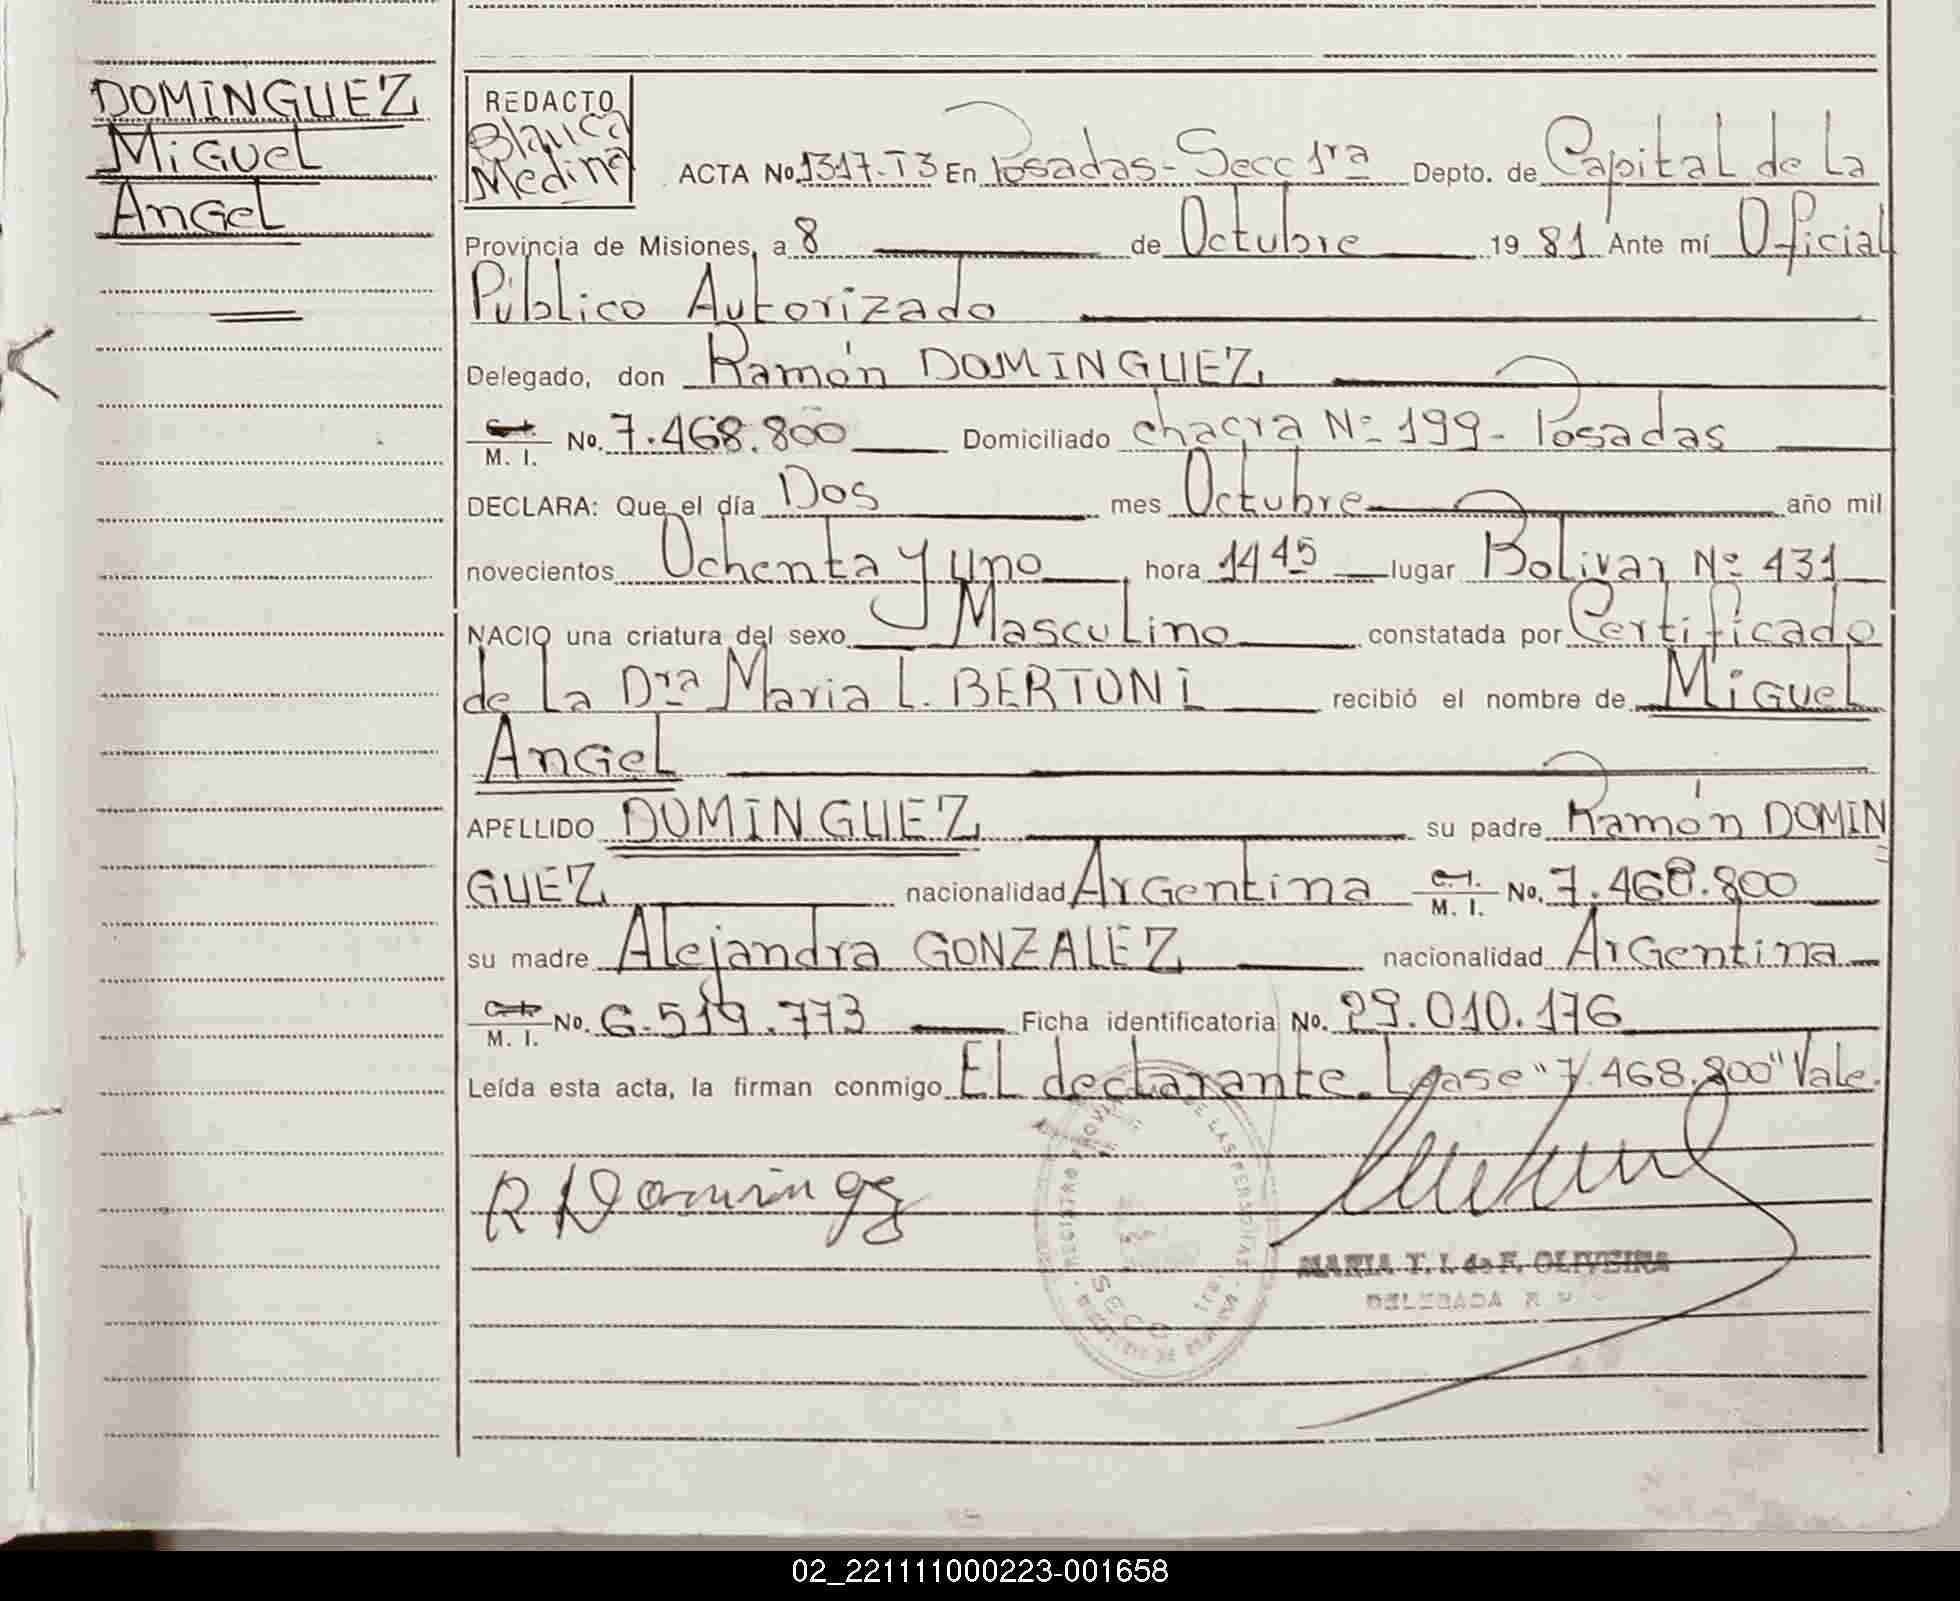 DOMINGUEZ
Miguel
Angel
REDACTO
Blanca
Medina
ACTA No. 1317-T3 En Posadas - Secc 1ra Depto. de Capital de La
Provincia de Misiones, a 8 de Octubre 19 81 Ante mí Oficial
Público Autorizado
Delegado, don Ramón DOMINGUEZ
M. I. No. 7.468.800 Domiciliado chacra Nº 199 - Posadas
DECLARA: Que el día Dos mes Octubre año mil
novecientos Ochenta y uno hora 14 45 lugar Bolivar Nº 431
NACIO una criatura del sexo Masculino constatada por Certificado
de La Dra Maria L. BERTONI recibió el nombre de Miguel
Angel
APELLIDO DOMINGUEZ su padre Ramón DOMIN
GUEZ nacionalidad Argentina C.I. M. I. No. 7.468.800
su madre Alejandra GONZALEZ nacionalidad Argentina
M. I. No. 6.519.773 Ficha identificatoria No. 29.010.176
Leída esta acta, la firman conmigo EL declarante. Lease "7.468.800" Vale.
R Doming
MARIA T. I. de F. OLIVEIRA
DELEGADA
02_221111000223-001658